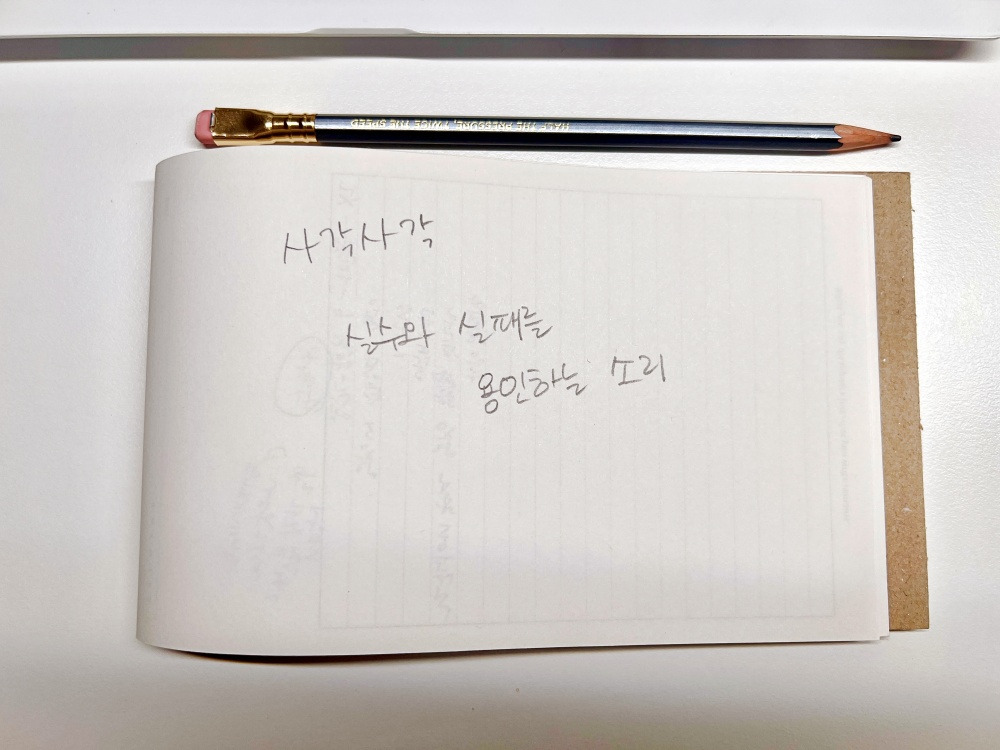 HALF THE PRESSURE, TWICE THE SPEED
사각사각
실수와 실패를
용인하는 소리